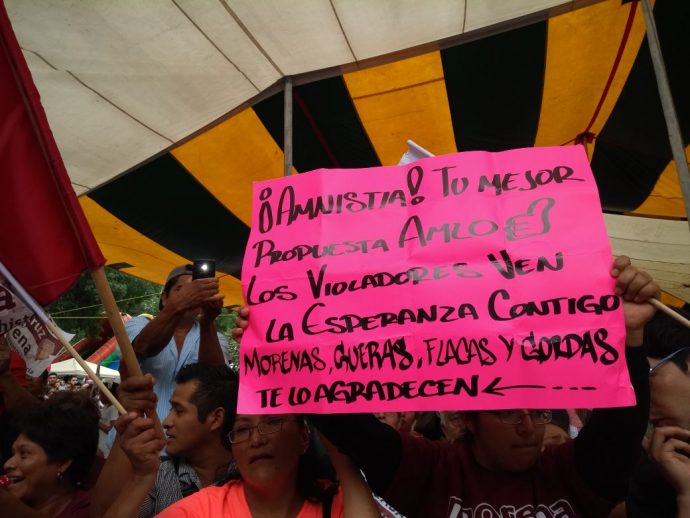 ¡AMNISTIA! TU MEJOR
PROPUESTA AMLO
LOS VIOLADORES VEN
LA ESPERANZA CONTIGO
MORENAS, GUERAS, FLACAS Y GORDAS
TE LO AGRADECEN
morena